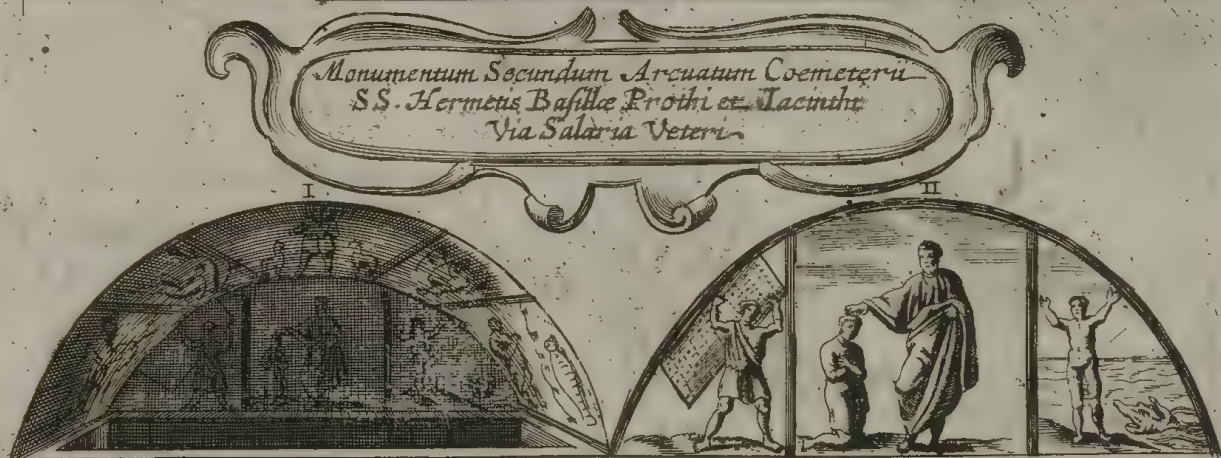 Monumentum Secundum Arcuatum Coemeterii
SS. Hermetis Basillæ Prothi et Jacinthi
Via Salaria Veteri
I
II